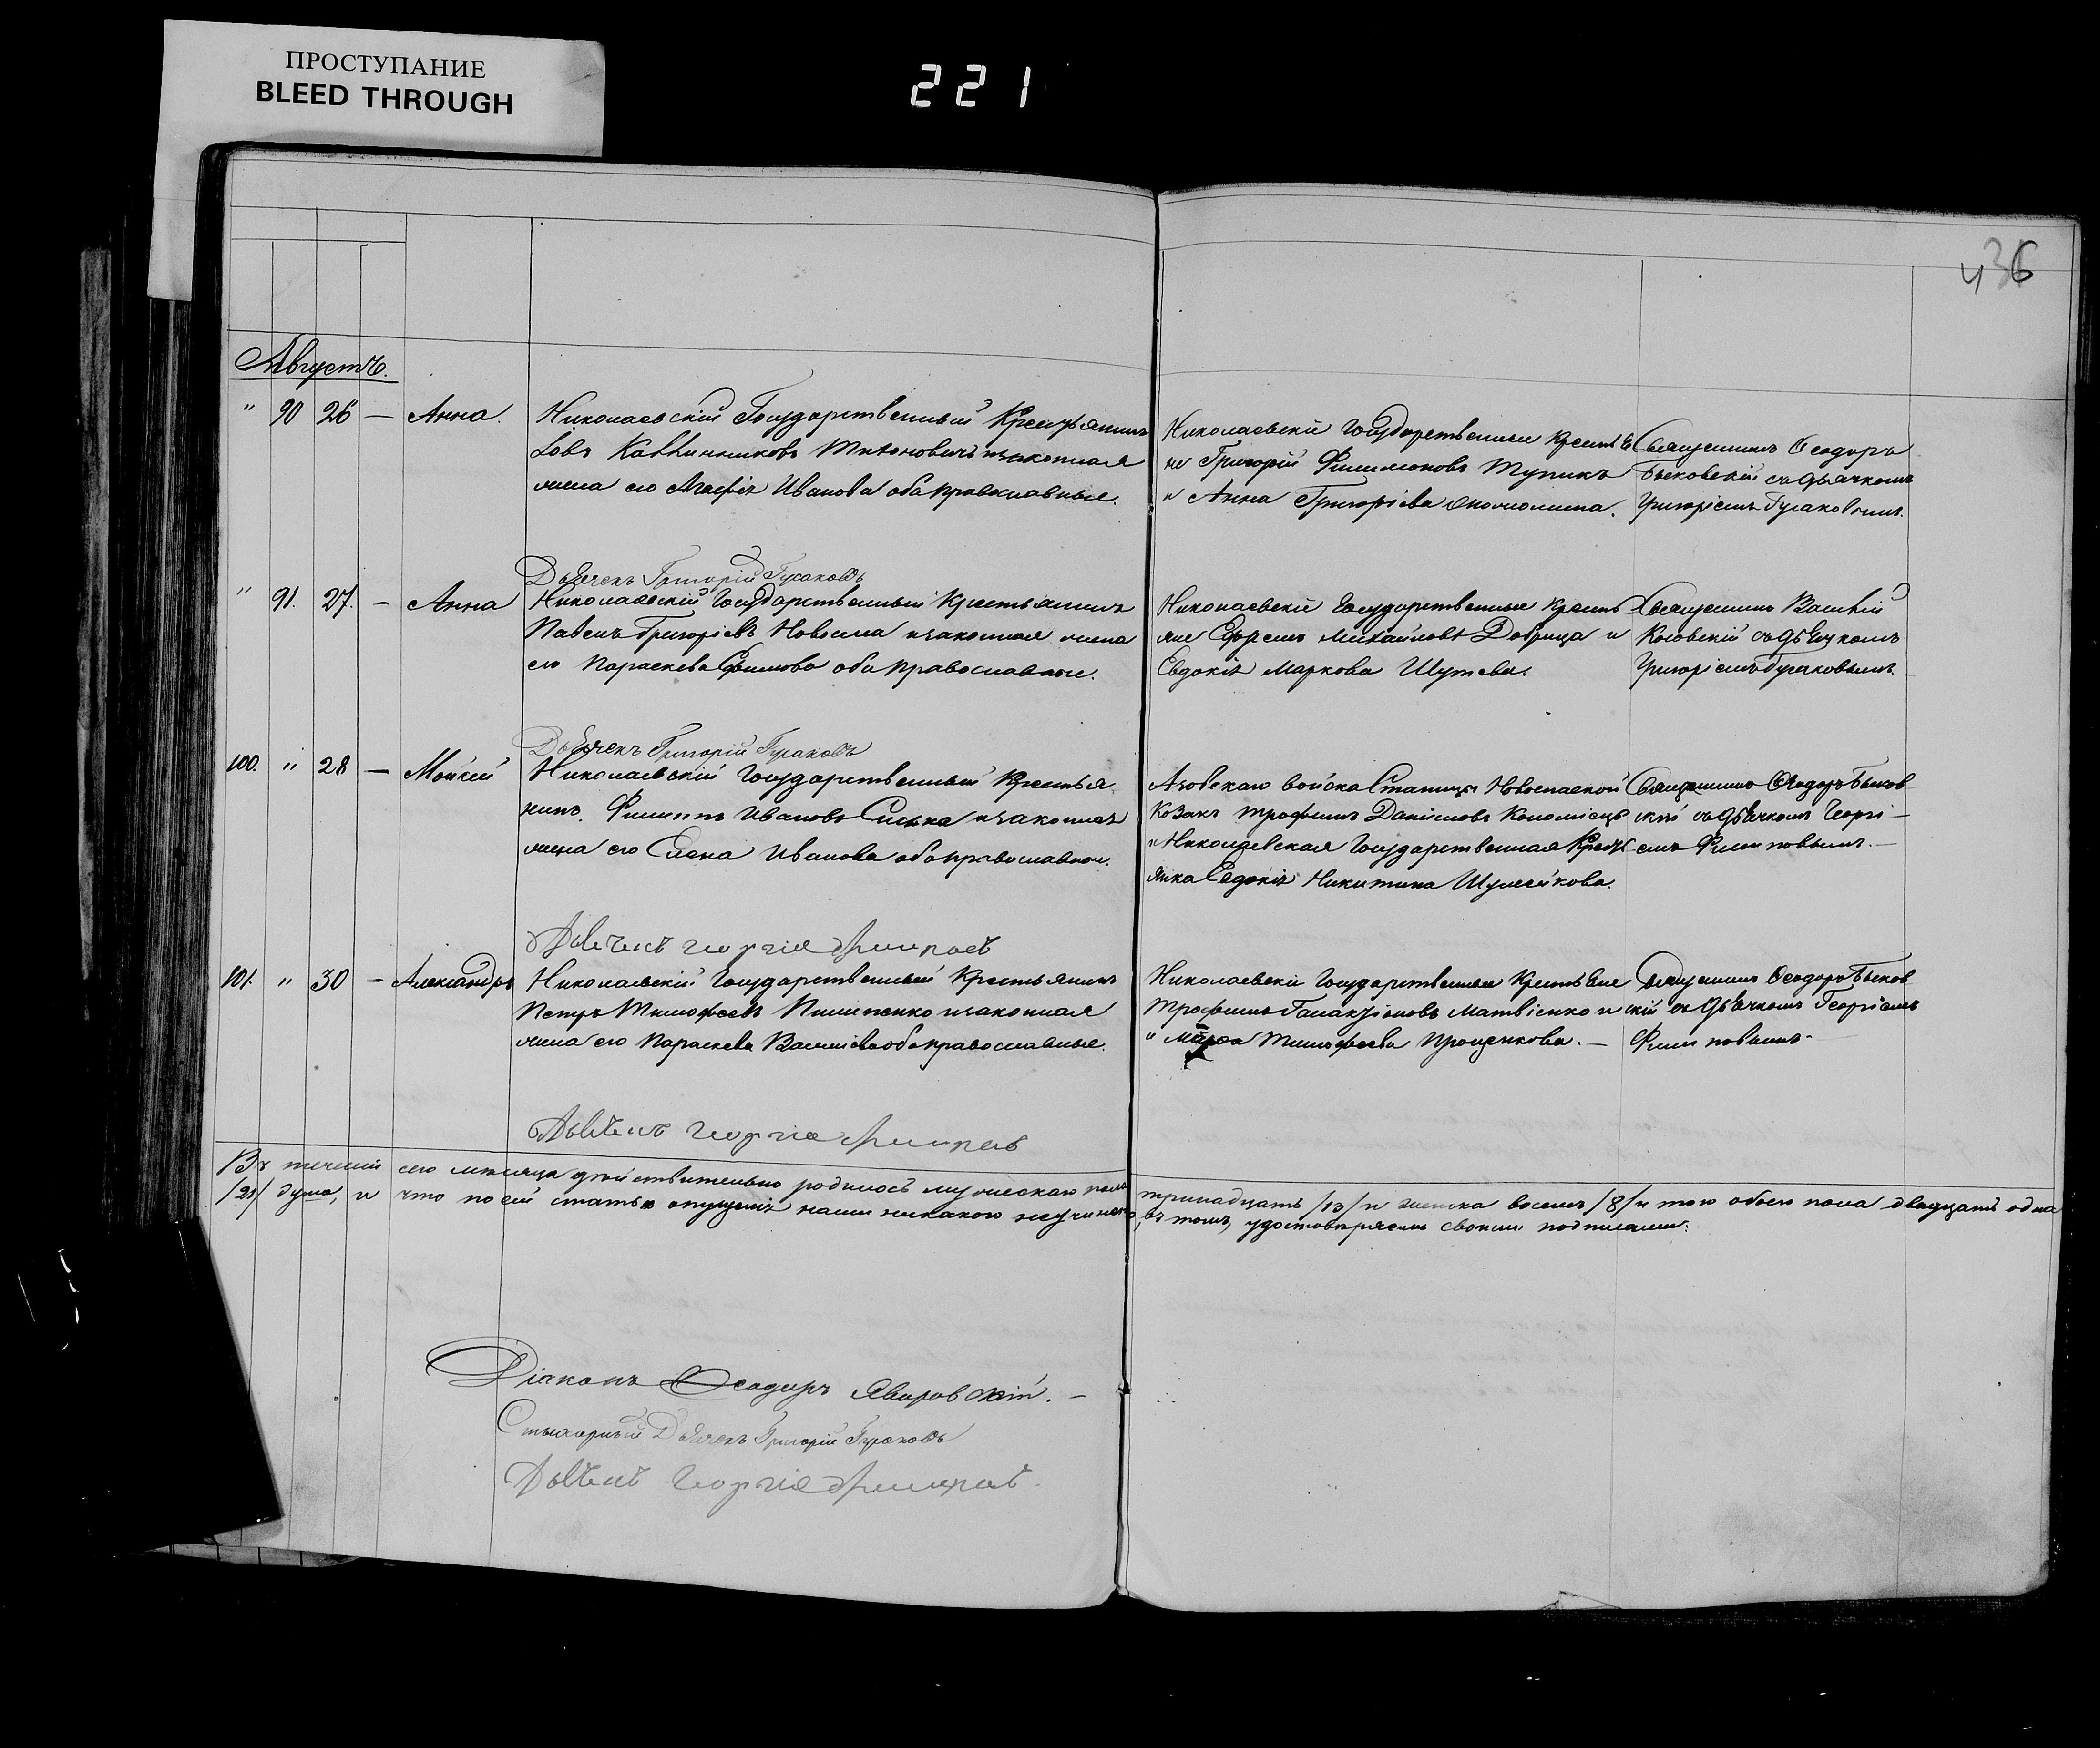 ПРОСТУПАНИЕ
BLEED THROUGH
221
436
Августъ.
" 90 26 — Анна.
Николаевскій Государственный Крестьянинъ
Іовъ Митоновичъ и законная
жена его Агафія Иванова оба православные.
Николаевскіе Государственные Крестья
не Григорій Филимоновъ Тупикъ
и Анна Григорієва
Священникъ Ѳеодоръ
Быковскій съ дьячкомъ
Григоріемъ Гусаковымъ.
Дьячекъ Григорій Гусаковъ
" 91. 27. — Анна
Николаевскій Государственный Крестьянинъ
Павелъ Григорієвъ Новохата и законная жена
его Параскева Ефимова оба православные.
Николаевскіе Государственные Кресть
яне Ефремъ Михайловъ Добрица и
Евдокія Маркова Шутева.
Священникъ Василій
Косовскій съ дьячкомъ
Григоріемъ Гусаковымъ.
Дьячекъ Григорій Гусаковъ
100. " 28 — Мойсей
Николаевскій Государственный Крестья
нинъ Филиппъ Ивановъ и законная
жена его Елена Иванова оба православные.
Азовскаго войска Станицы Новоспаской
Козакъ Трофимъ Даніиловъ Коломіецъ
и Николаевская Государственная Кресть
янка Евдокія Никитина Шулейкова.
Священникъ Ѳеодоръ Быков
скій съ дьячкомъ Георгі—
емъ Филиповымъ.—
Дьячекъ Георгій Филиповъ
101. " 30 — Александръ
Николаевскій Государственный Крестьянинъ
Петръ Тимофеевъ Пилипенко и законная
жена его Параскева Василієва оба православные.
Николаевскіе Государственные Крестьяне
Трофимъ Галактіоновъ Матвіенко и
и Марѳа Тимофеева Прощенкова.—
Священникъ Ѳеодоръ Быков
скій съ дьячкомъ Георгіемъ
Филиповымъ.
Дьячекъ Георгій Филиповъ
Въ теченіи сего мѣсяца дѣйствительно родилось мужескаго пола тринадцать /13/ и женска восемь /8/ и того обоего пола двадцать одна
/21/ душа, и что по сей статьѣ опущенія нами никакого не учинено, въ томъ, удостовѣряемъ своими подписами:
Діаконъ Ѳеодоръ Яворовскій.—
Стихарный Дьячекъ Григорій Гусаковъ
Дьячекъ Георгій Филиповъ.